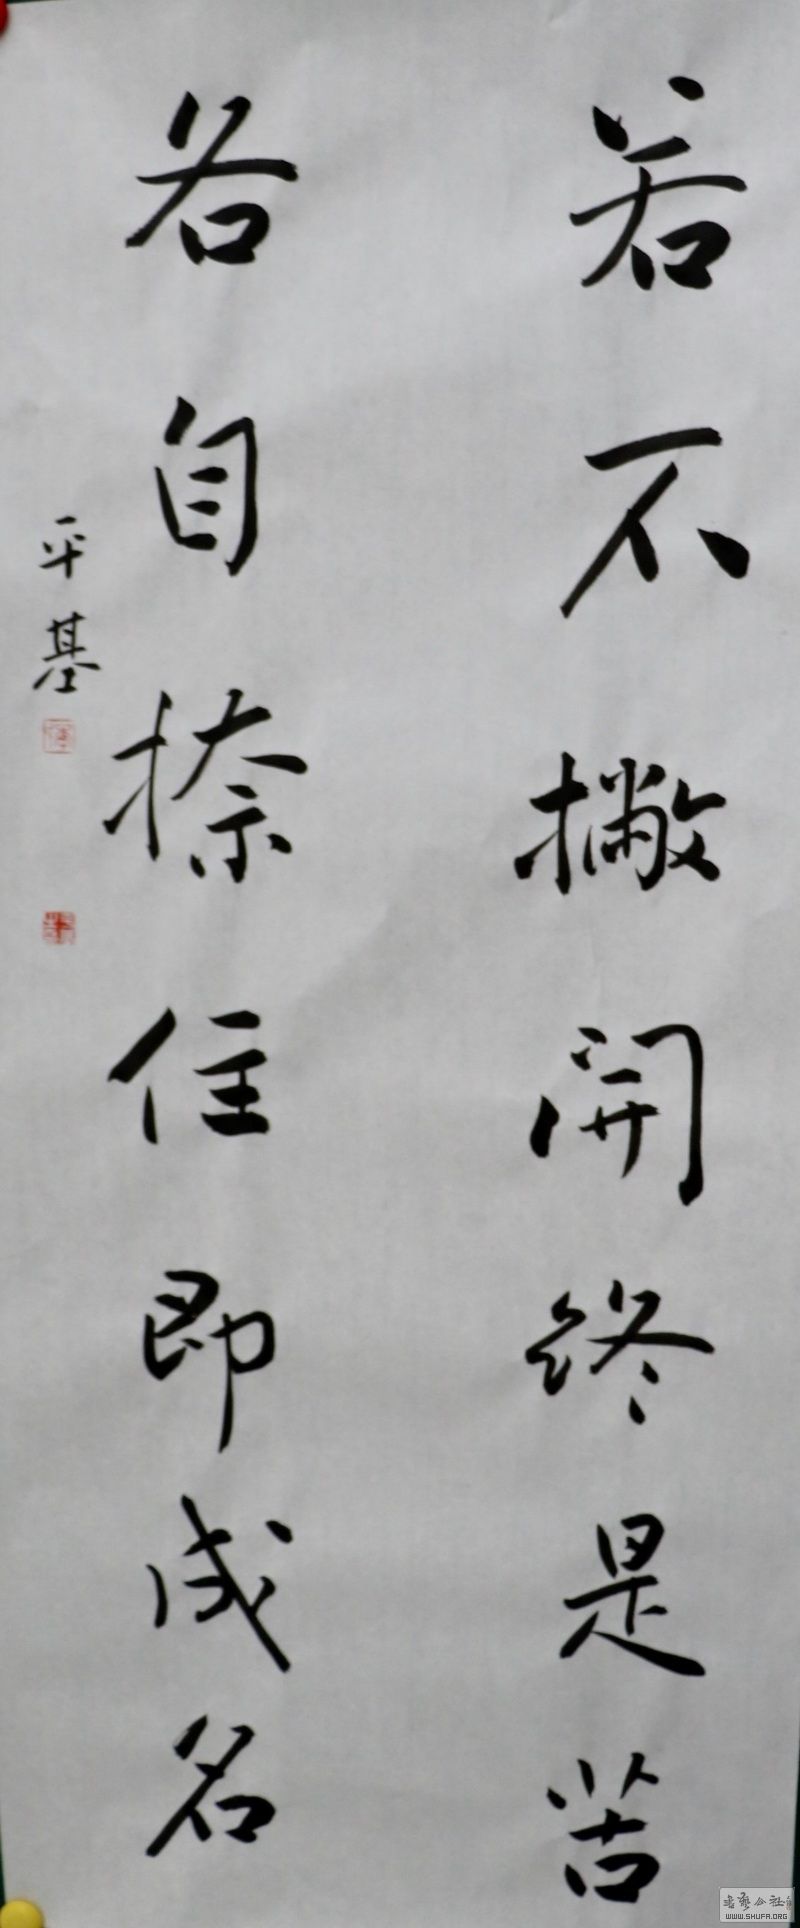 若不撇開终是苦
各自捺住即成名
平基
書藝公社
WWW.SHUFA.ORG